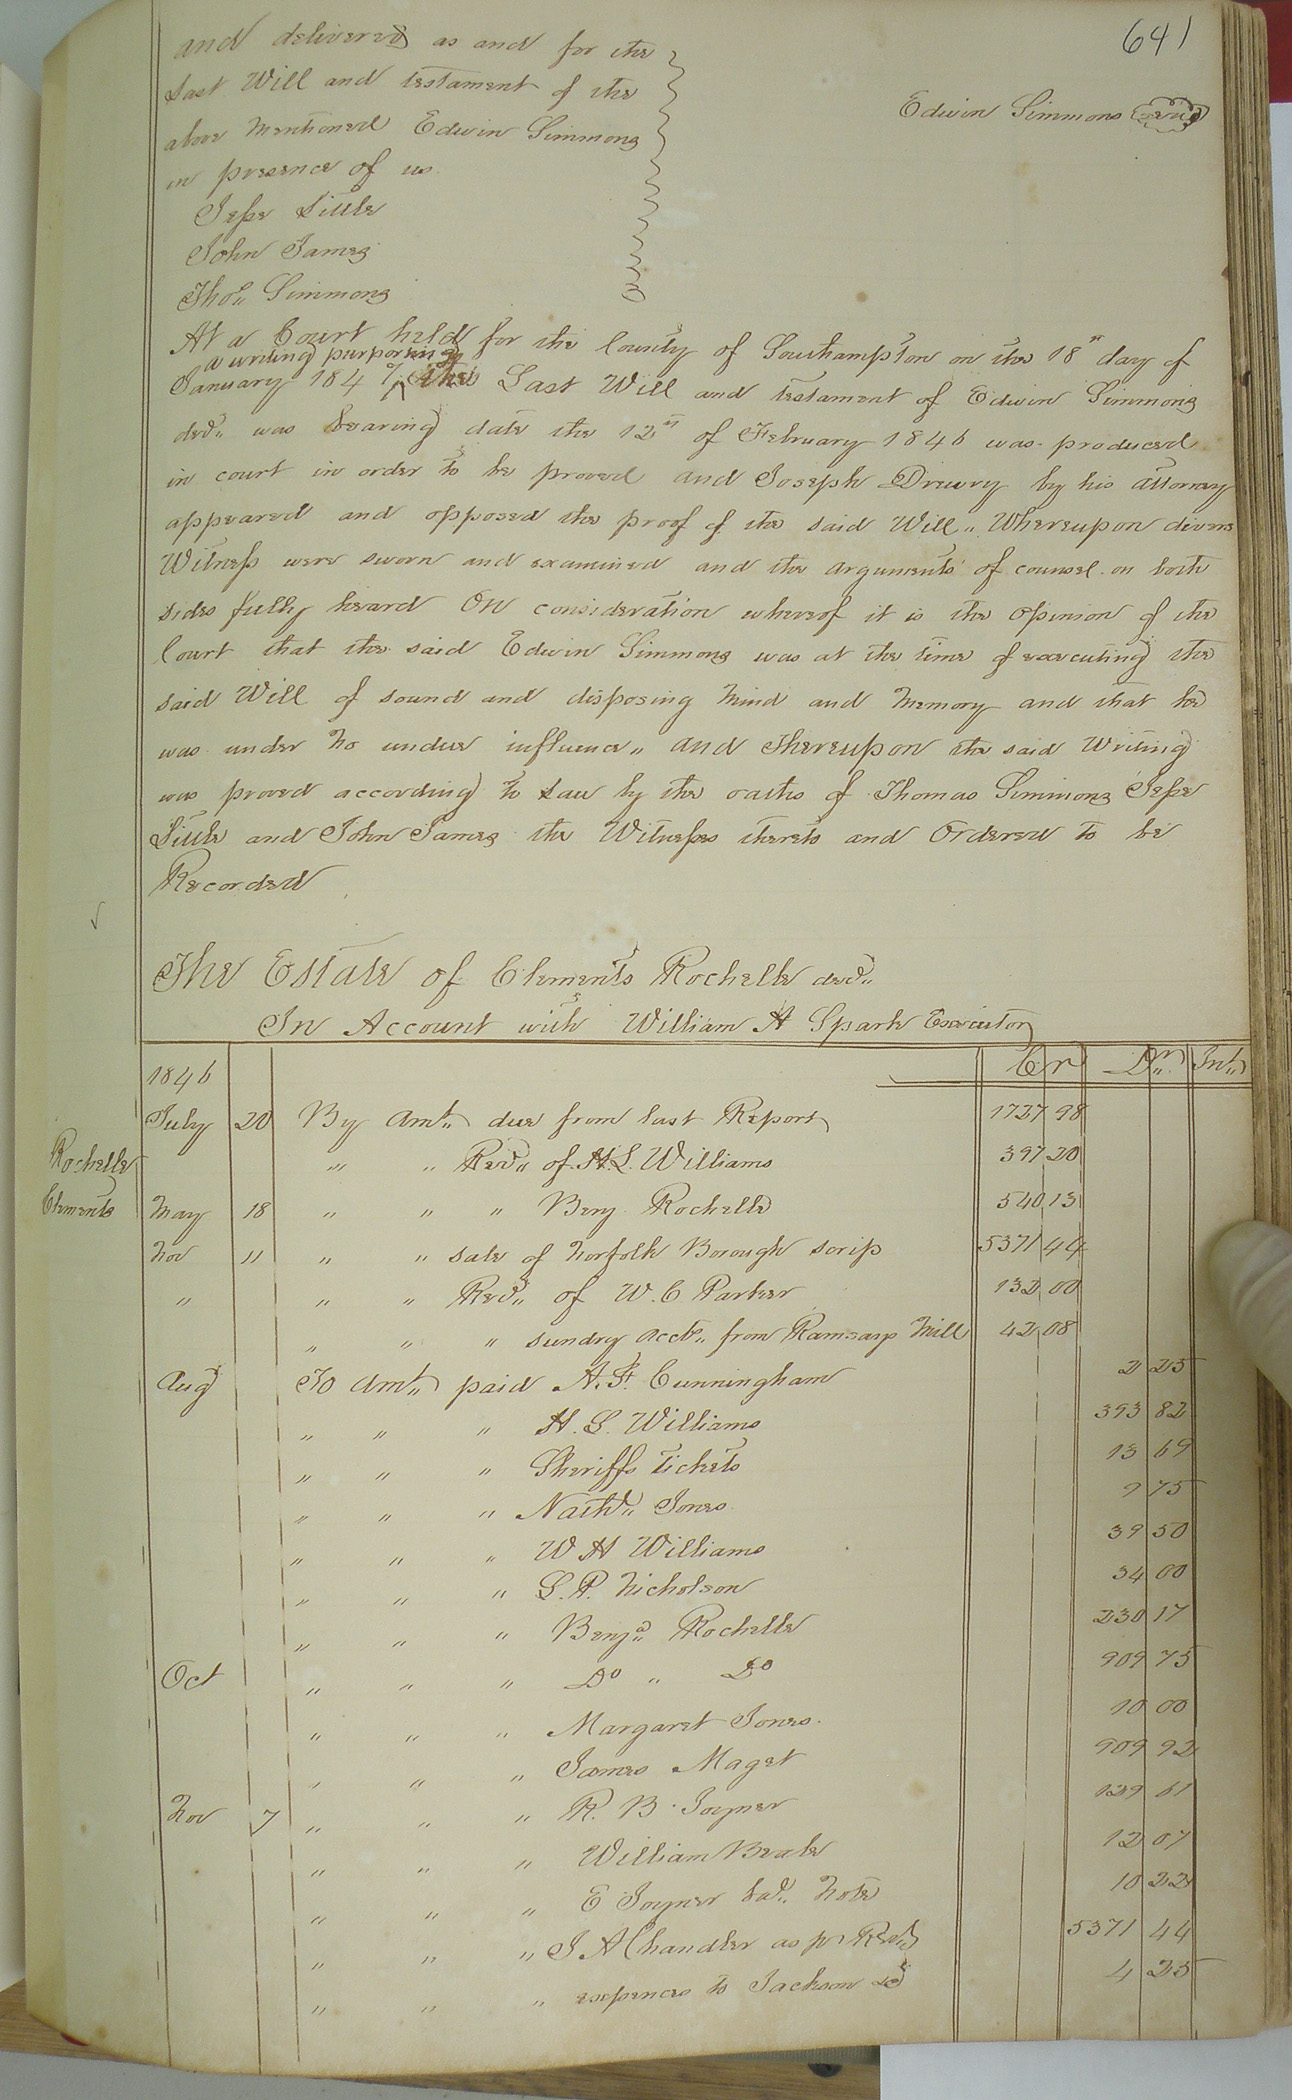 641
and delivered as and for the
Last Will and testament of the
above mentioned Edwin Simmons
in presence of us
Edwin Simmons seal
Jesse Little
John James
Tho.s Simmons
At a Court held for the County of Southampton on the 18th day of
a writing purporting
January 1847 the Last Will and testament of Edwin Simmons
decd. was bearing date the 12th of February 1846 was produced
in court in order to be proved and Joseph Drewry by his attorney
appeared and opposed the proof of the said Will Whereupon divers
Witness were sworn and examined and the arguments of counsel on both
sides fully heard On consideration whereof it is the opinion of the
Court that the said Edwin Simmons was at the time of executing the
said Will of sound and disposing mind and memory and that he
was under no undue influence and thereupon the said Writing
was proved according to Law by the oaths of Thomas Simmons Jesse
Little and John James the Witnesses thereto and Ordered to be
Recorded
The Estate of Clements Rochelle decd.
In Account with William A Spark Executor
1846 Cr Dr. Int.
July 20 By Amt. due from last Report 1727 98
Rochelle
Clements
" " Recd. of H. L. Williams 397 20
May 18 " " " Benj Rochelle 540 13
Nov 11 " " sale of Norfolk Borough scrip 5371 44
" " " Recd. of W. C Parker 132 00
" " " sundry accts. from Ramsays Mill 42 08
Aug To Amt. paid A. F. Cunningham 2 25
" " " H. L. Williams 393 82
" " " Sheriffs tickets 13 69
" " " Nathl. Jones 9 75
" " " W H Williams 39 50
" " " G. P. Nicholson 34 00
" " " Benja. Rochelle 230 17
Oct " " " Do " Do 909 75
" " " Margaret Jones 10 00
" " " James Maget 909 92
Nov 7 " " " R. B. Joyner 129 61
" " " William Beale 12 07
" " " E Joyner bal. Note 10 22
" " " J. A Chandler as pr Rect 5371 44
" " " expences to Jackson 4 25